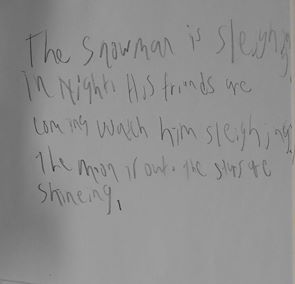 The Snowman is sleighing
in Night. His friends are
coming watch him sleighjing.
the moon is out. the stars are
shineing.